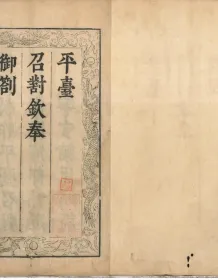 平臺
召對欽奉
御劄